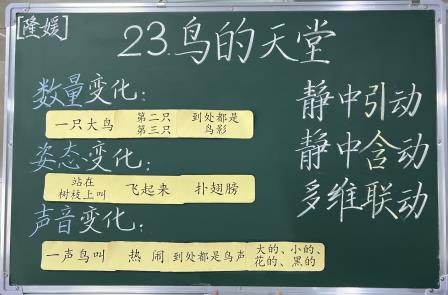 [隆媛]
23.鸟的天堂
数量变化：
一只大鸟 第二只 第三只 到处都是鸟影
姿态变化：
站在树枝上叫 飞起来 扑翅膀
声音变化：
一声鸟叫 热闹 到处都是鸟声 大的、小的、花的、黑的
静中引动
静中含动
多维联动